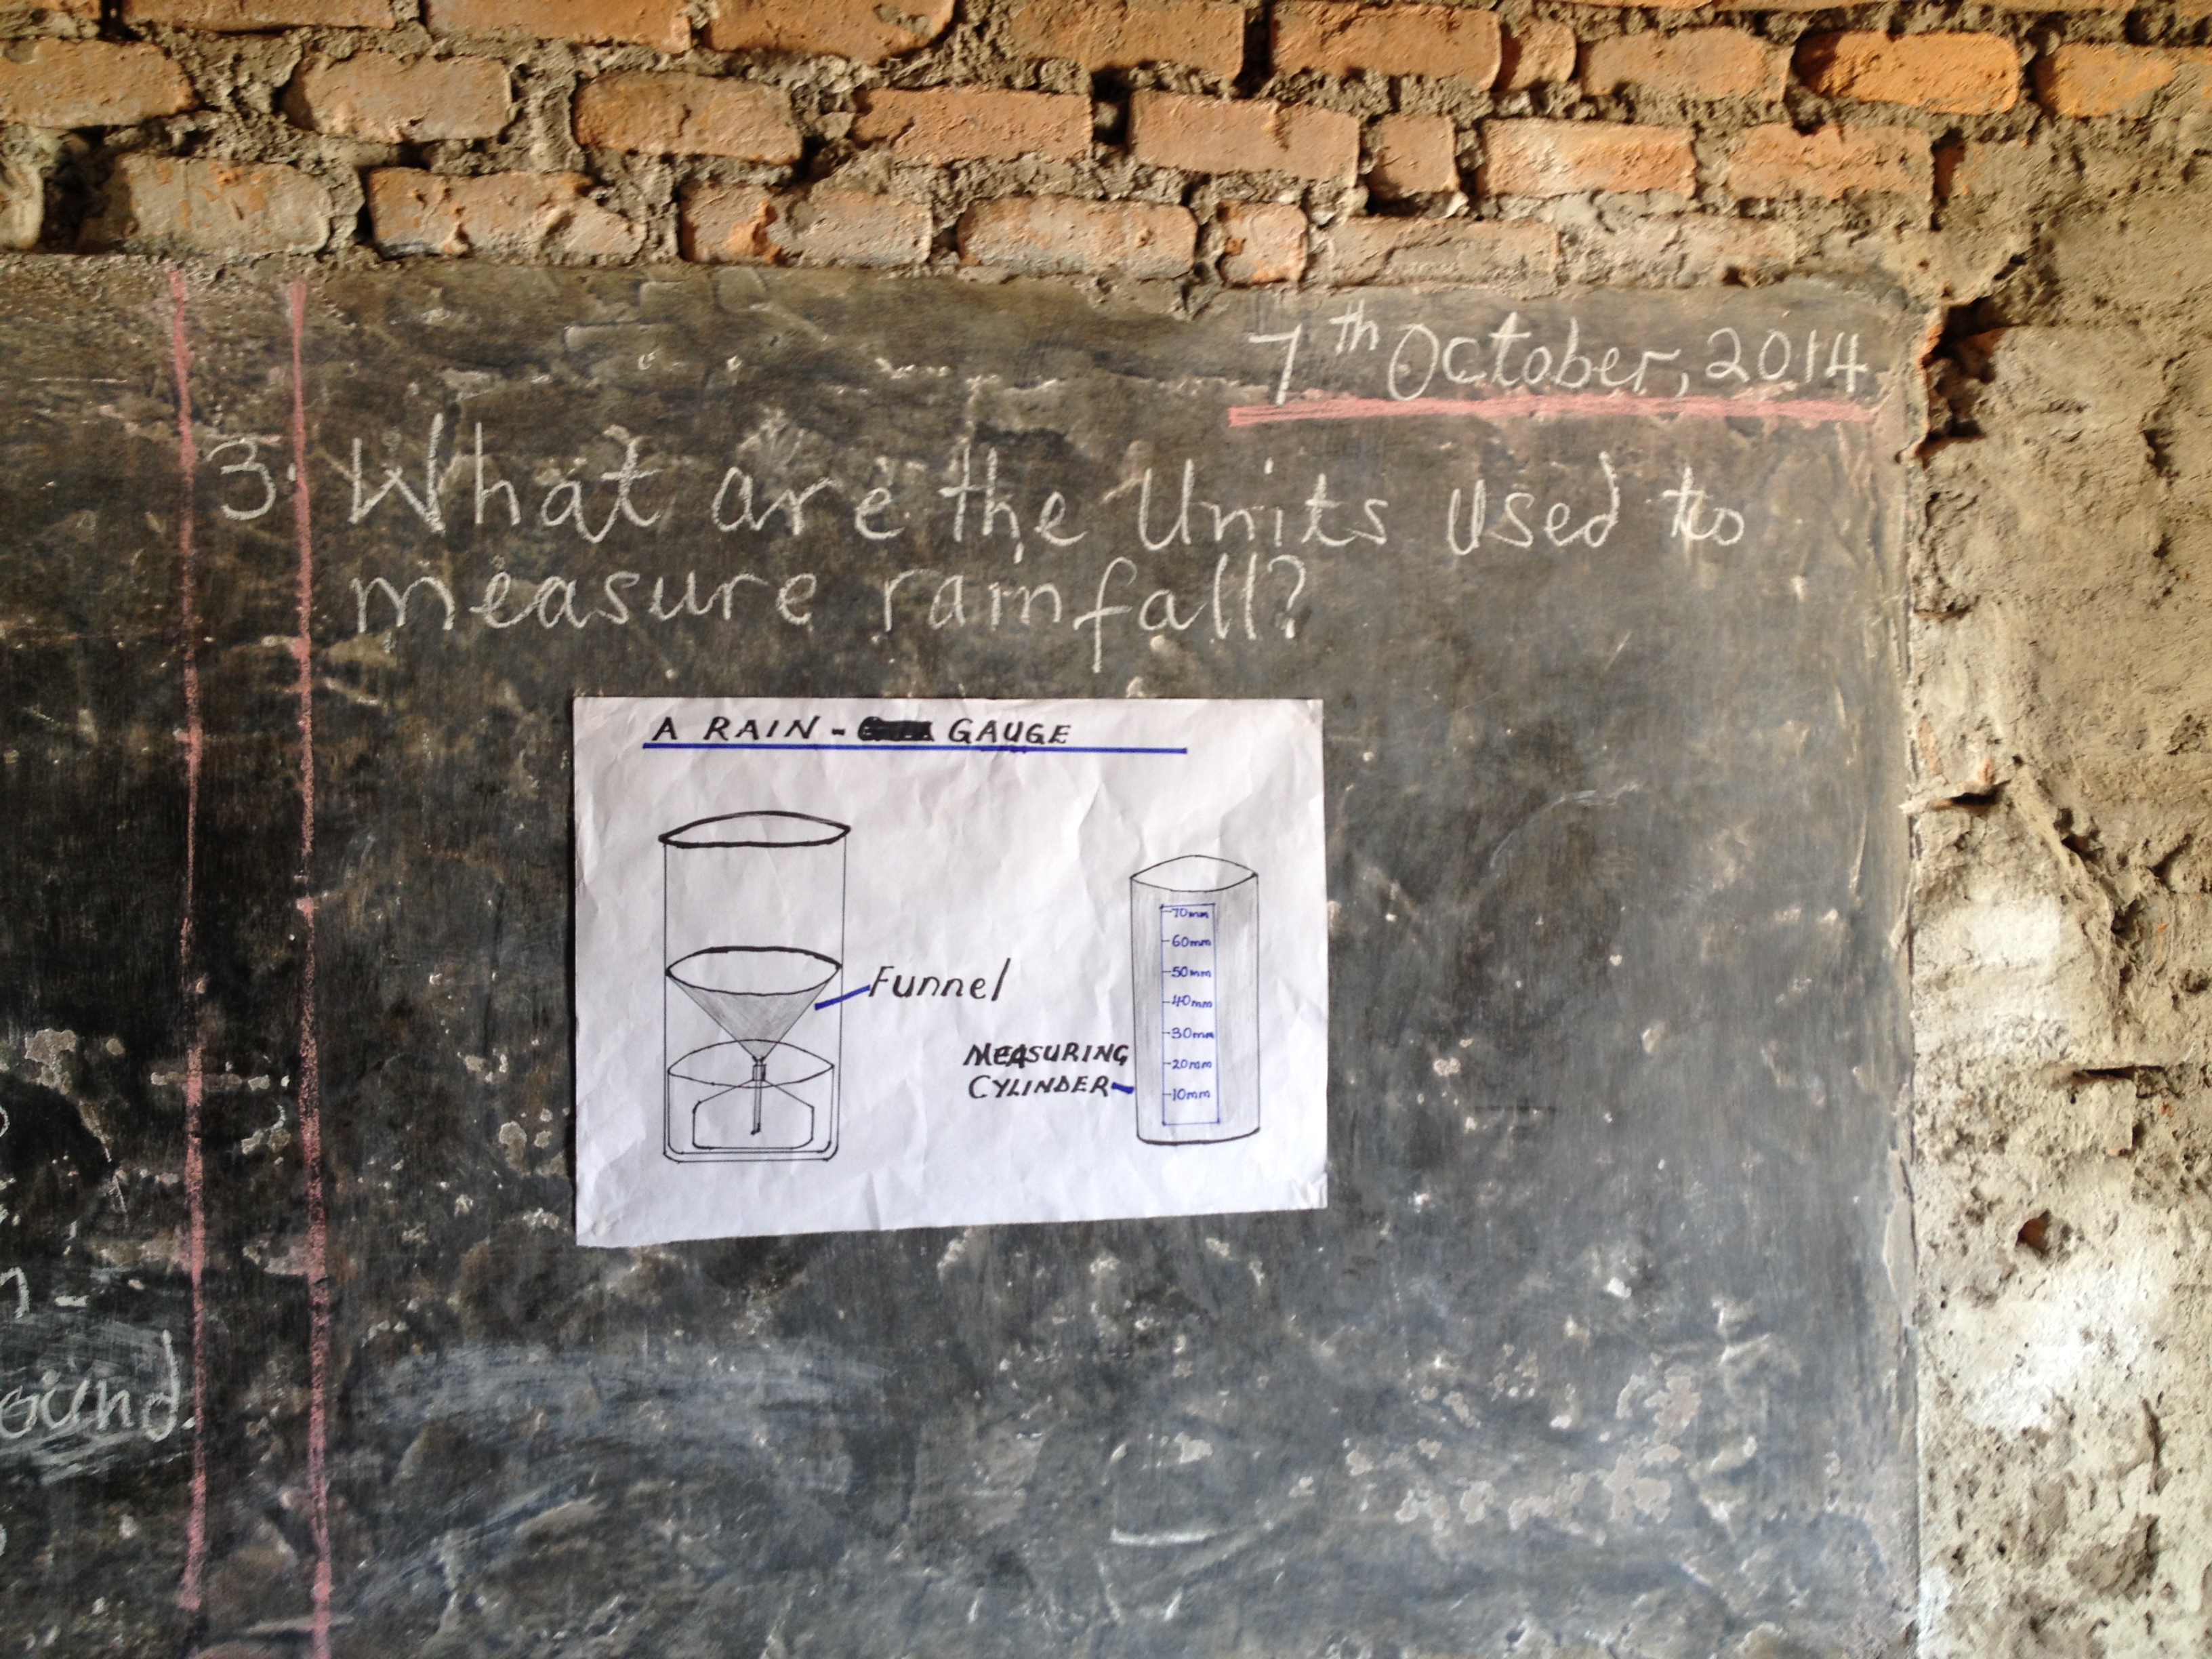 7th October, 2014
3. What are the Units used to
measure rainfall?
A RAIN - GAUGE
Funnel
MEASURING
CYLINDER
70mm
60mm
50mm
40mm
30mm
20mm
10mm